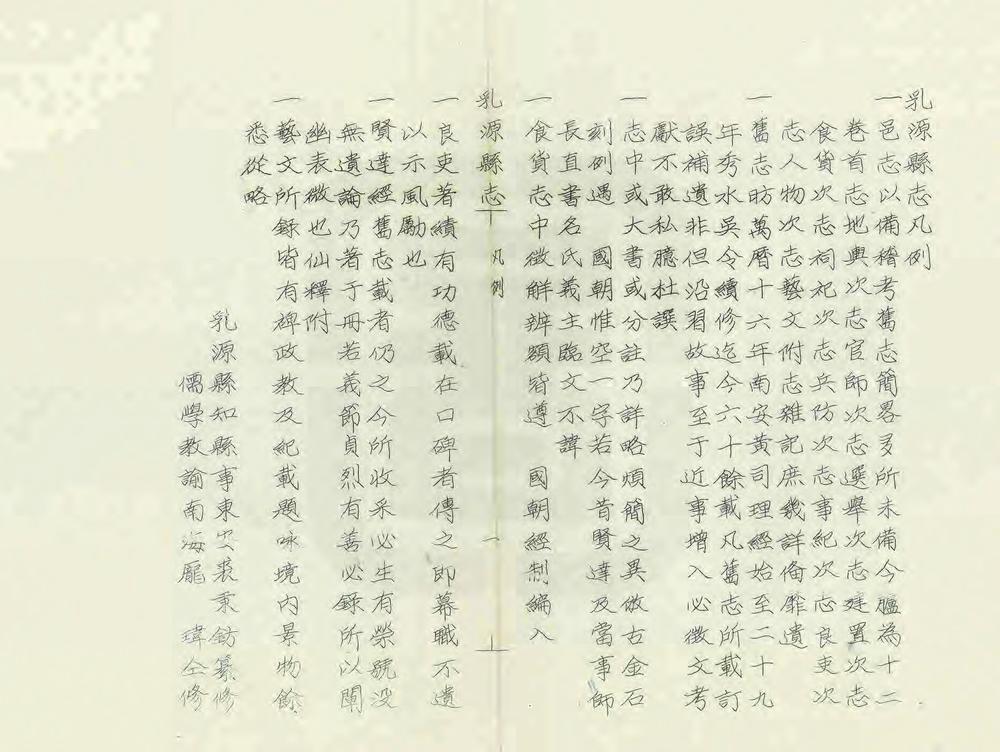 乳源縣志凡例
一邑志以備稽考舊志簡畧多所未備今臚為十二
卷首志地輿次志官師次志選舉次志建置次志
食貨次志祠祀次志兵防次志事紀次志良吏次
志人物次志藝文附志雜記庶幾詳俻靡遺
一舊志昉萬曆十六年南安黃司理經始至二十九
年秀水吳令續修迄今六十餘載凡舊志所載訂
誤補遺非但沿習故事至于近事增入必徵文考
獻不敢私臆杜譔
一志中或大書或分註乃詳略煩簡之異倣古金石
刻例遇 國朝惟空一字若今昔賢達及當事師
長直書名氏義主臨文不諱
一食貨志中徵解辦額皆遵 國朝經制編入
乳源縣志 凡例 一
一良吏著績有功德載在口碑者傳之即幕職不遺
以示風勵也
一賢達經舊志載者仍之今所收采必生有榮號沒
無遺論乃著于冊若義節貞烈有善必錄所以闡
幽表微也仙釋附
一藝文所錄皆有碑政教及紀載題咏境內景物餘
悉從略
乳源縣知縣事東安裘秉鈁纂修
儒學教諭南海龐 瑋仝修